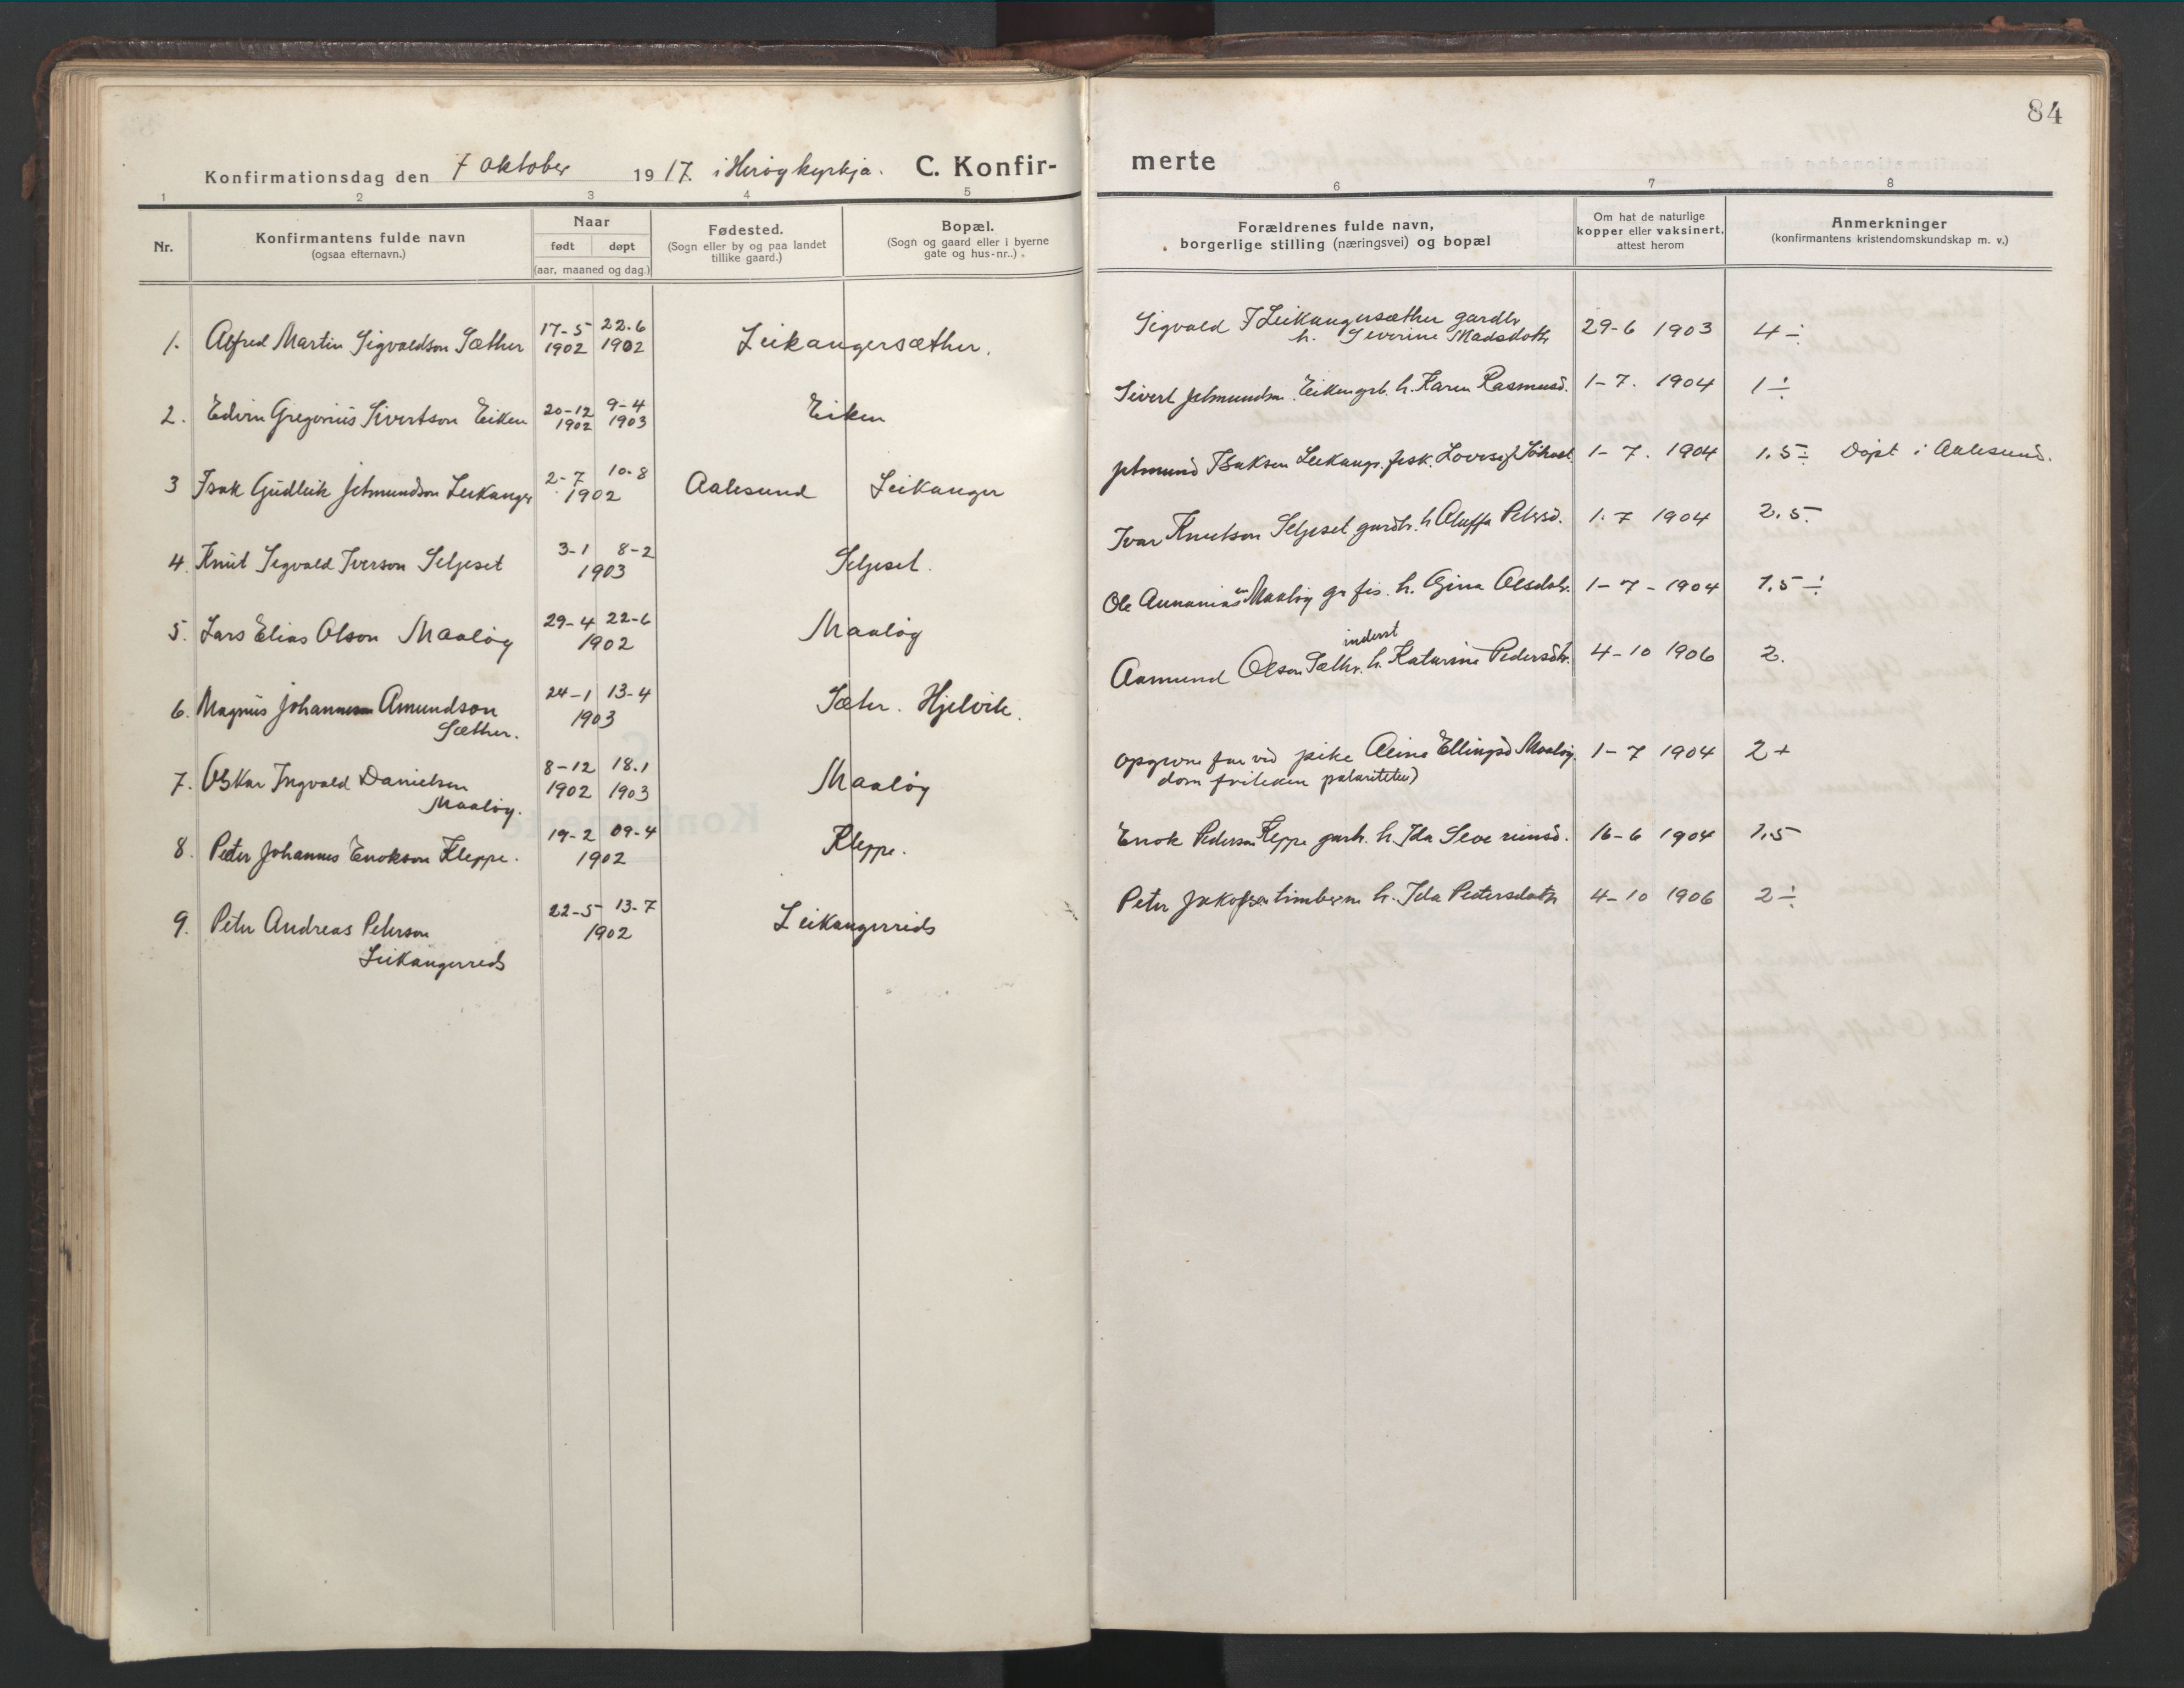 84
Konfirmationsdag den 7 oktober 1917. i Herøy kyrkja. C. Konfir-
merte
1 2 3 4 5
6 7 8
Nr.
Konfirmantens fulde navn
(ogsaa efternavn.)
Naar
født døpt
(aar, maaned og dag.)
Fødested.
(Sogn eller by og paa landet
tillike gaard.)
Bopæl.
(Sogn og gaard eller i byerne
gate og hus-nr..)
Forældrenes fulde navn,
borgerlige stilling (næringsvei) og bopæl
Om hat de naturlige
kopper eller vaksinert,
attest herom
Anmerkninger
(konfirmantens kristendomskundskap m. v.)
1. Alfred Martin Sigvaldson Sæther 17-5 1902 22.6 1902 Leikangersæther.
Sigvald Leikangersæther gardbr
h. Severine Madsdotr 29-6 1903 4÷
2. Edvin Gregorius Sivertson Eiken 20-12 1902 9-4 1903 Eiken
Sivert Jetmundsn Eiken grb. h. Karen Rasmusd. 1-7. 1904 1÷
3 Isak Gudleik Jetmundson Leikanger 2-7 10-8 1902 Aalesund Leikanger
Jetmund Isaksen Leikang. fisk. 1-7. 1904 1.5÷ Døpt i Aalesund.
4. Knut Sigvald Iverson Seljeset 3-1 8-2 1903 Seljeset.
Ivar Knutson Seljeset gardbr. h Oluffa Petersd. 1.7 1904 2.5.
5. Lars Elias Olson Maaløy 29-4 22-6 1902 Maaløy
Ole Annanias Maaløy gr fis. h. Gina Olsdotr. 1-7-1904 1.5÷
6. Magnus Johannesen Amundson
Sæther. 24-1 13-4 1903 Sæter. Hjelvik.
inderst
Aamund Olson Sæthr. h. Katarine Pedersdtr. 4-10 1906 2.
7. Oskar Ingvald Danielsen
Maaløy. 8-12 1902 18.1 1903 Maaløy
opgivne far vid pike Aline Ellingsd Maaløy. 1-7 1904 2+
8. Peter Johannes Enokson Kleppe. 19-2 09-4 1902 Kleppe.
Enok Pederson Kleppe garb. h. Ida Severinsd. 16-6 1904 1.5
9. Peter Andreas Peterson
Leikangerreids 22-5 13-7 1902 Leikangerreids
Peter Jakobsen timberm h. Ida Petersdotr 4-10 1906 2÷